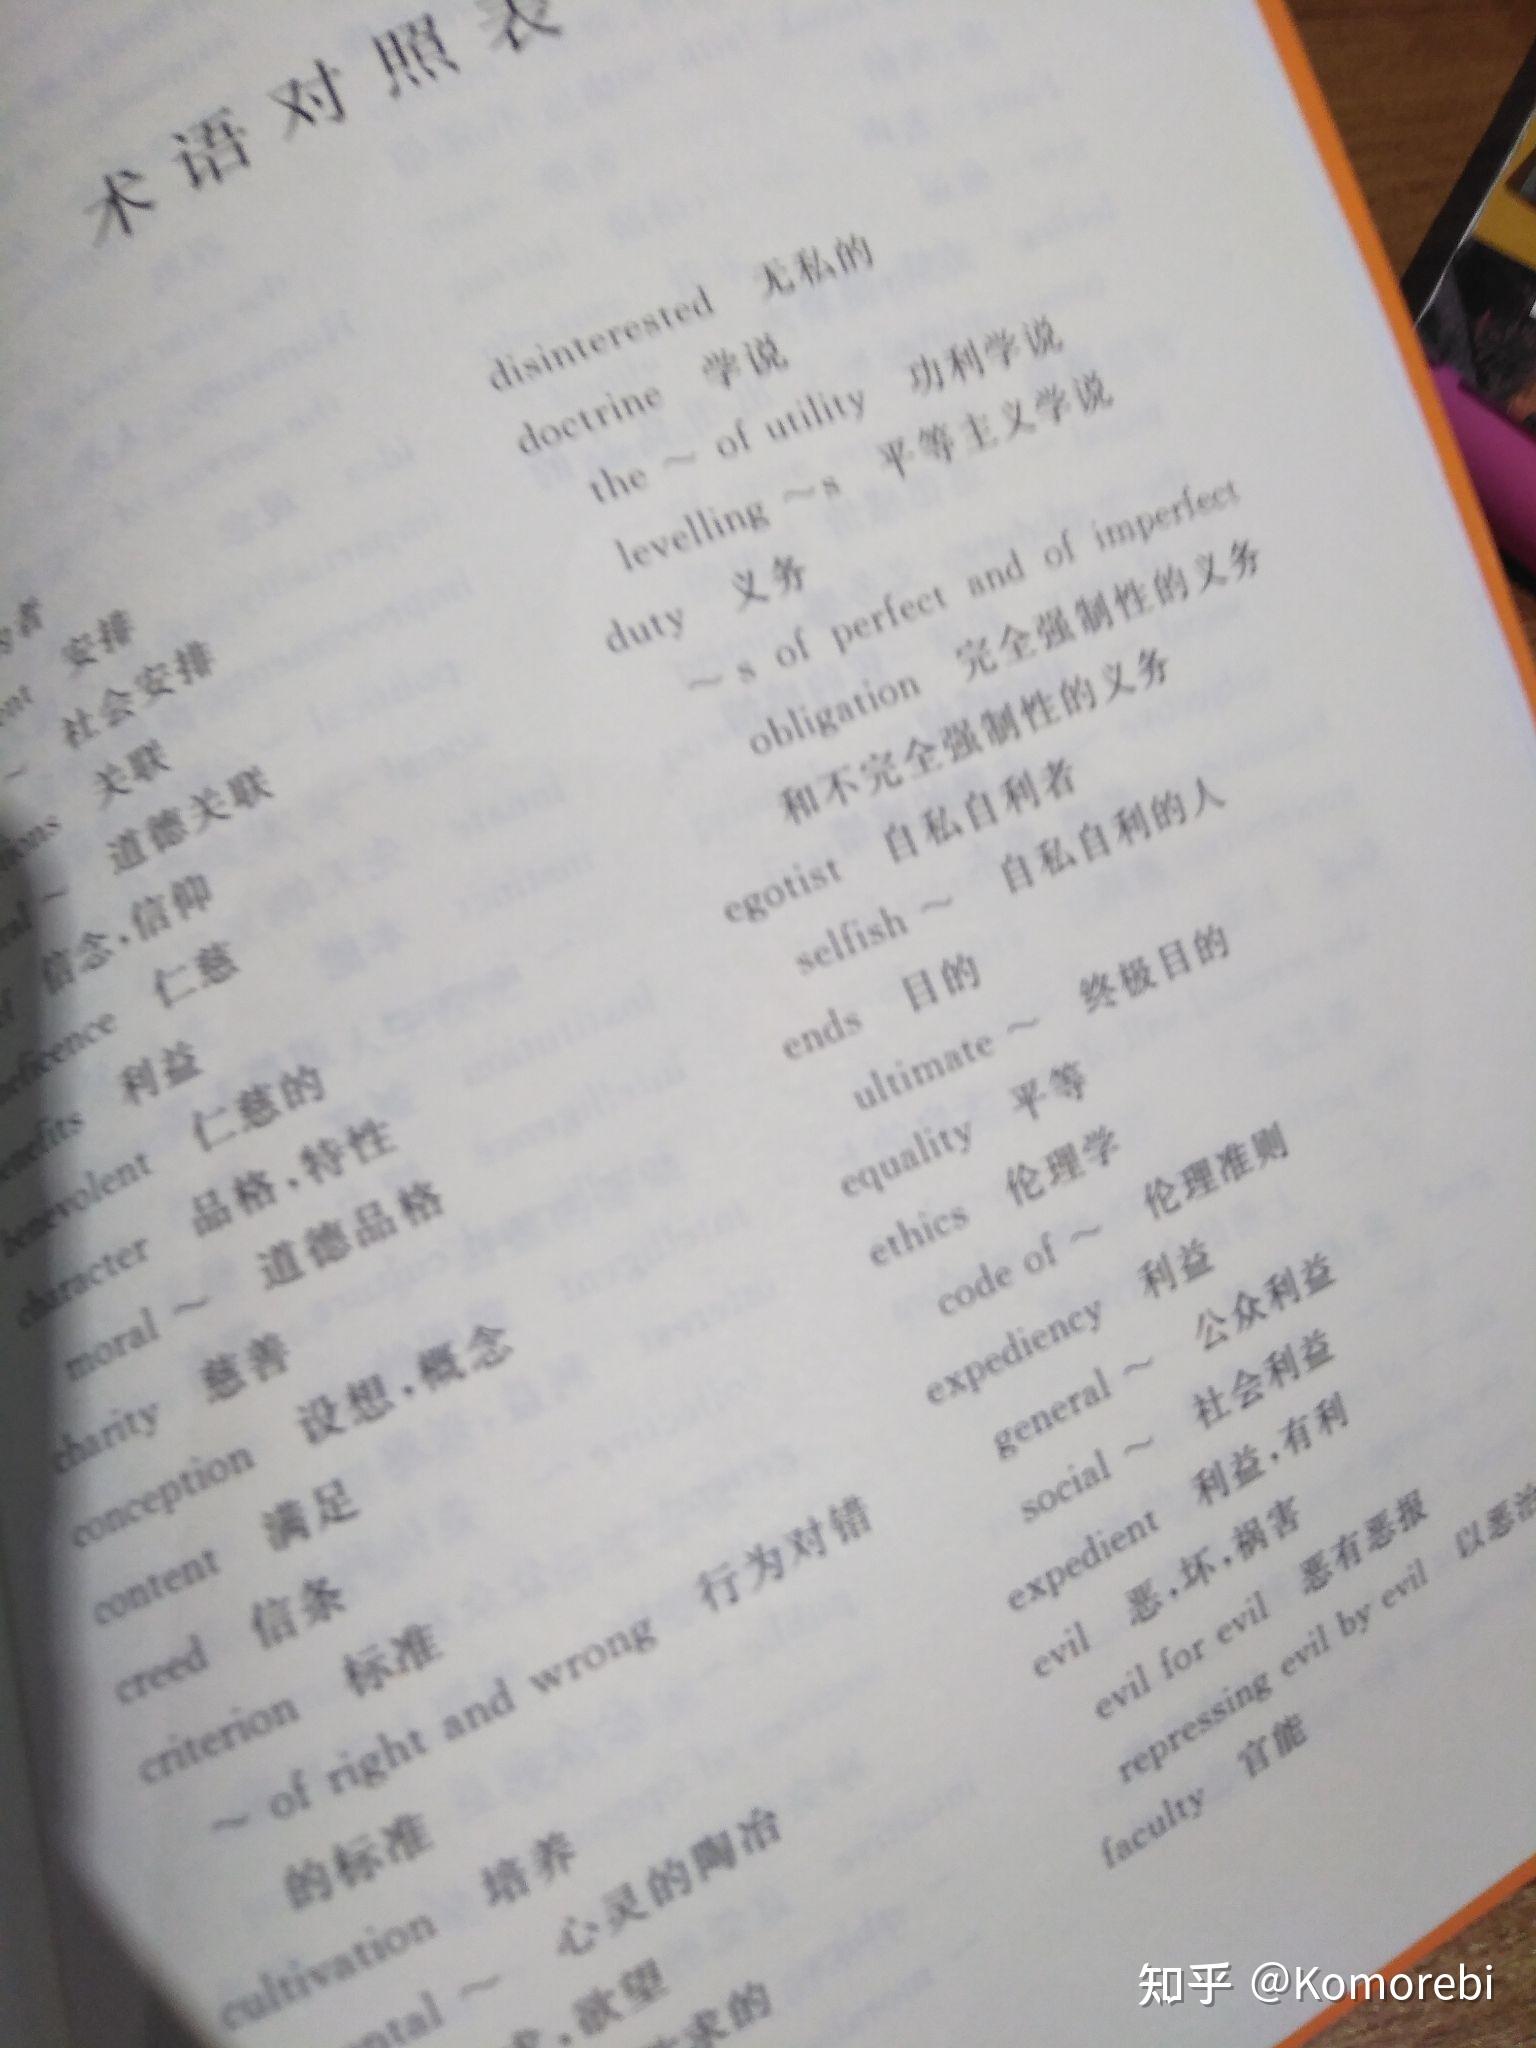 术语对照表
者
安排
~ 社会安排
关联
~ 道德关联
信念,信仰
仁慈
利益
benevolent 仁慈的
character 品格,特性
moral ~ 道德品格
charity 慈善
conception 设想,概念
content 满足
creed 信条
criterion 标准
~ of right and wrong 行为对错
的标准
cultivation 培养
~ 心灵的陶冶
,欲望
求的
disinterested 无私的
doctrine 学说
the ~ of utility 功利学说
levelling ~s 平等主义学说
duty 义务
~ s of perfect and of imperfect
obligation 完全强制性的义务
和不完全强制性的义务
egotist 自私自利者
selfish ~ 自私自利的人
ends 目的
ultimate ~ 终极目的
equality 平等
ethics 伦理学
code of ~ 伦理准则
expediency 利益
general ~ 公众利益
social ~ 社会利益
expedient 利益,有利
evil 恶,坏,祸害
evil for evil 恶有恶报
repressing evil by evil 以恶治
faculty 官能
知乎 @Komorebi